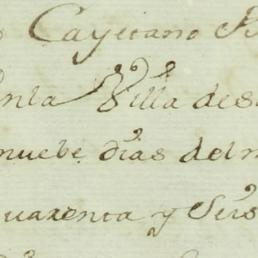 Cayetano
enla Villa des
nuebe dias del m
quarenta y Seis